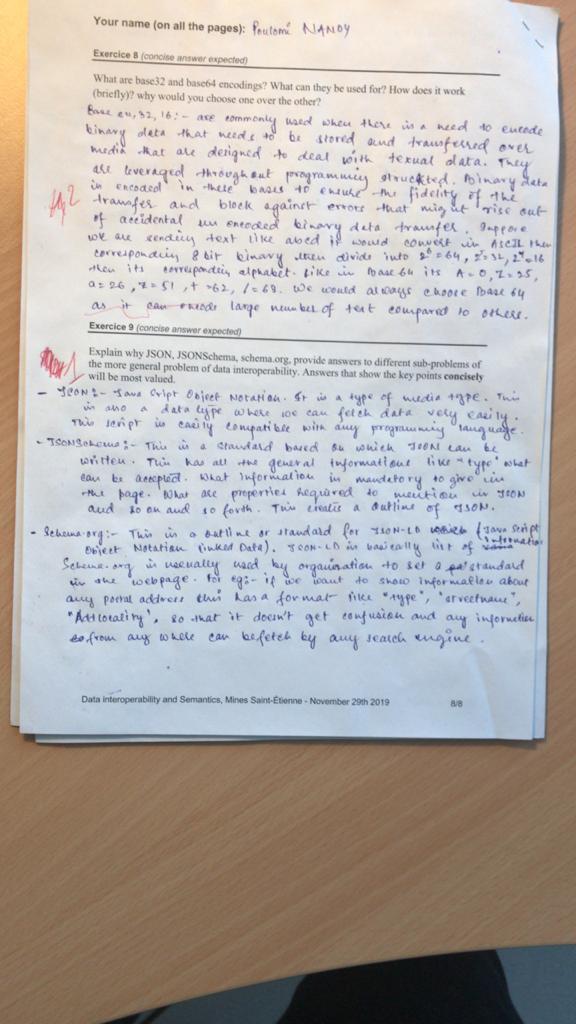 Your name (on all the pages): Poulomi NANDY
Exercice 8 (concise answer expected)
What are base32 and base64 encodings? What can they be used for? How does it work
(briefly)? why would you choose one over the other?
Base 64, 32, 16:- are commonly used when there is a need to encode
binary data that needs to be stored and transferred over
media that are designed to deal with texual data. They
are leveraged throughout programming Binary data
is encoded in these bases to ensure the fidelity of the
transfer and block against errors that might rise out
of accidental un encoded binary data transfer. Suppose
we are sending text like abcd it would convert in ASCII then
corresponding 8 bit binary then divide into 2⁶=64, 2⁵=32, 2⁴=16
then its corresponding alphabet. Like in Base 64 its A=0, Z=25,
a=26, z=51, + =62, /=63. We would always choose Base 64
as it can encode large number of text compared to others.
2
Exercice 9 (concise answer expected)
1
Explain why JSON, JSONSchema, schema.org, provide answers to different sub-problems of
the more general problem of data interoperability. Answers that show the key points concisely
will be most valued.
- JSON:- Java Script Object Notation. It is a type of media type. This
is also a data type where we can fetch data very easily.
This script is easily compatible with any programming language.
- JSONSchema:- This is a standard based on which JSON can be
written. This has all the general informations like "type" what
can be accepted. What information is mandatory to give in
the page. What are properties required to mention in JSON
and so on and so forth. This creates a outline of JSON.
- Schema.org:- This is a outline or standard for JSON-LD (Java Script
Object Notation linked Data). JSON-LD is basically list of information
Schema.org is usually used by organisation to set a standard
in the webpage. For eg:- if we want to show information about
any postal address this has a format like "type", "streetname",
"Addlocality", so that it doesn't get confusion and any information
from any where can be fetch by any search engine.
Data Interoperability and Semantics, Mines Saint-Étienne - November 29th 2019
8/8